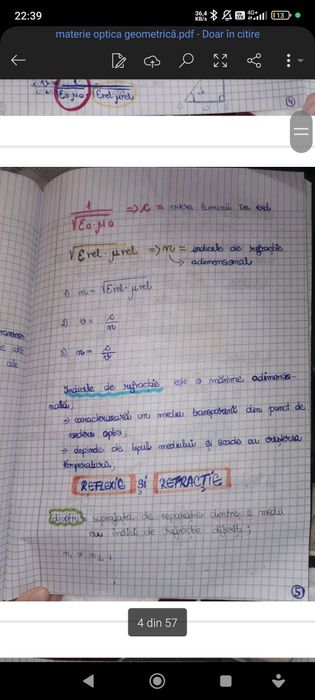 22:39
36,4
KB/s
4G+
13
materie optica geometrică.pdf - Doar în citire
4
1
√ε0·μ0
=> c = viteza luminii în vid
√εrel·μrel => n = indicele de refracție
↳ adimensional
1) n = √εrel·μrel
2) v = c/n
3) n = c/v
Indicele de refracție este o mărime adimensio-
nală;
→ caracterizează un mediu transparent din punct de
vedere optic;
→ depinde de tipul mediului și scade cu creșterea
temperaturii;
REFLEXIE ȘI REFRACȚIE
dioptru = suprafața de separație dintre 2 medii
cu indici de refracție diferiți;
n1 ≠ n2,
4 din 57
5